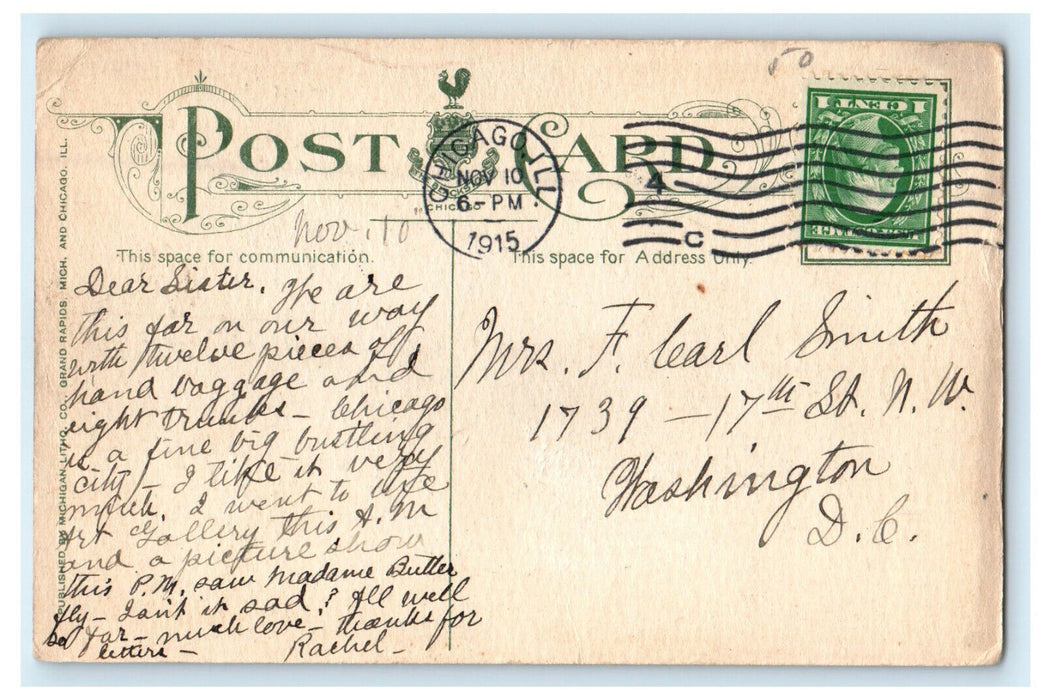 POST CARD
CHICAGO, ILL.
NOV 10
6-PM
1915
4
C
1 CENT 1
Nov. 10
This space for communication.
This space for Address Only.
PUBLISHED BY MICHIGAN LITHO. CO., GRAND RAPIDS. MICH. AND CHICAGO. ILL.
Dear Sister. We are
this far on our way
with twelve pieces of
hand baggage and
eight trunks - Chicago
is a fine big bustling
city - I like it very
much. I went to the
Art Gallery this A.M
and a picture show
this P.M. saw Madame Butter
fly - Isn't it sad? All well
so far - much love - thanks for
letters -
Rachel -
Mrs. F. Carl Smith
1739 - 17th St. N. W.
Washington
D. C.